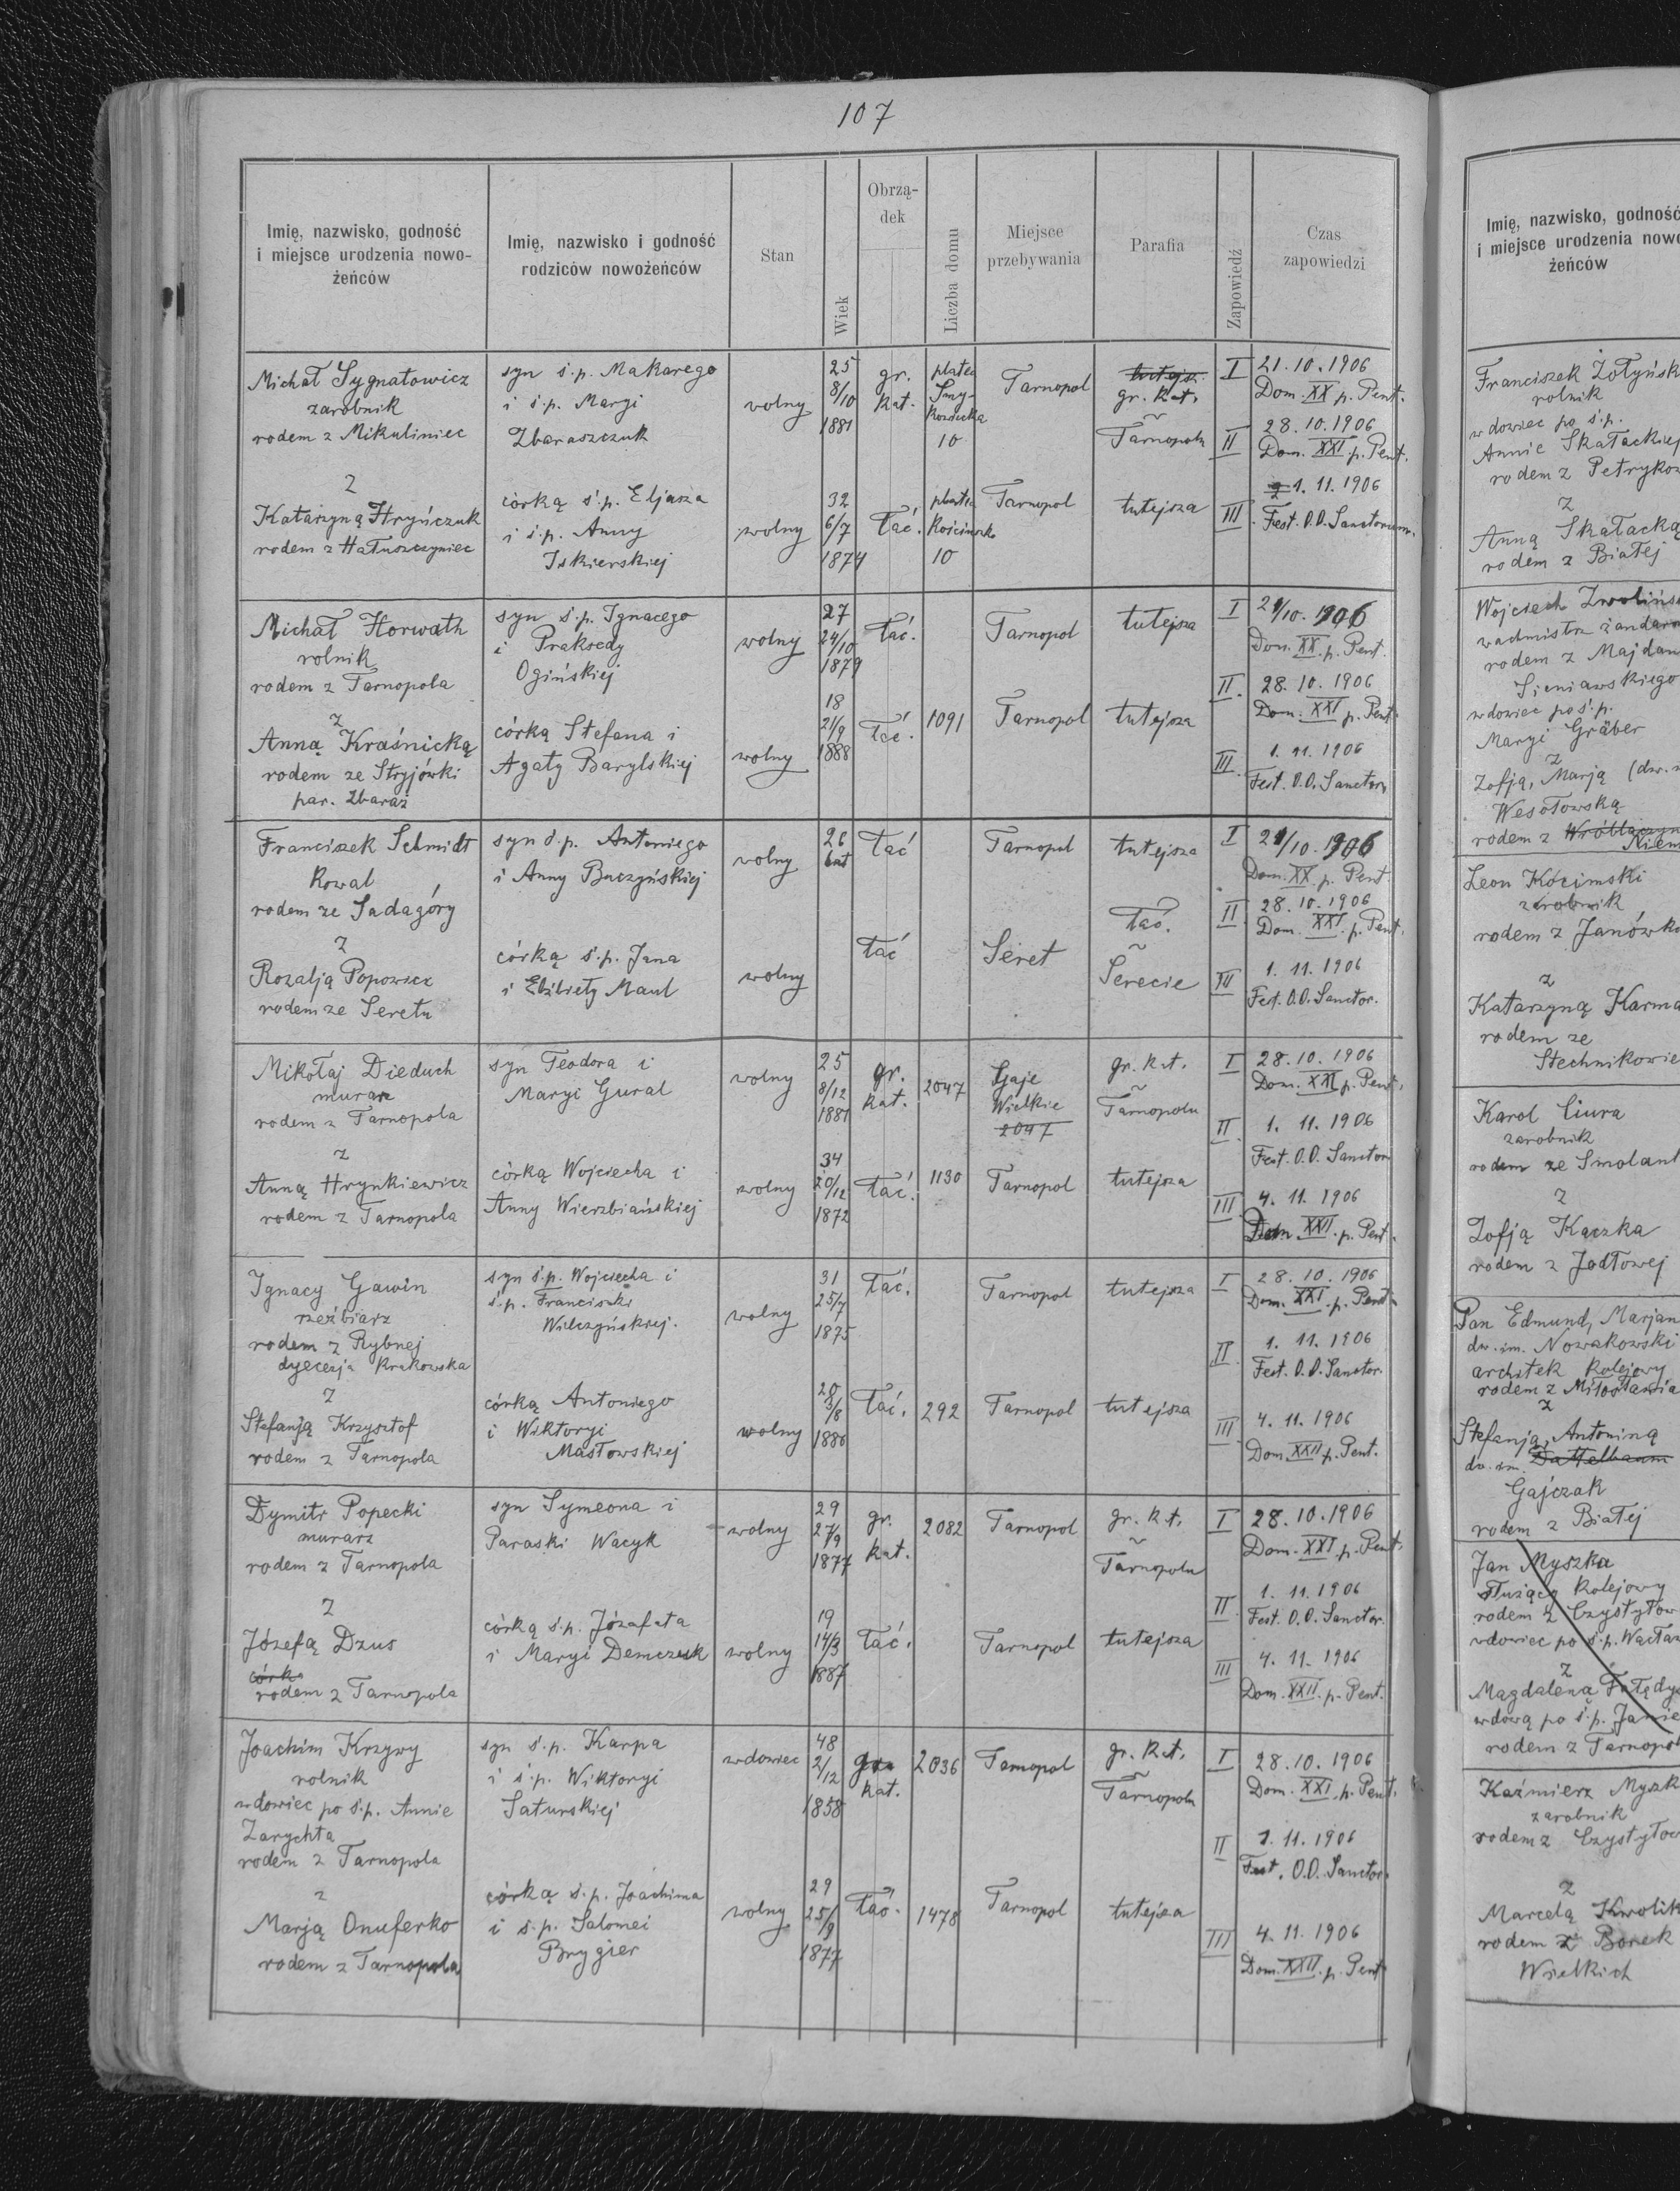 107
Imię, nazwisko, godność
i miejsce urodzenia nowo-
żeńców
Imię, nazwisko i godność
rodziców nowożeńców
Stan
Wiek
Obrzą-
dek
Liczba domu
Miejsce
przebywania
Parafia
Zapowiedź
Czas
zapowiedzi
Michał Sygnatowicz
zarobnik
rodem z Mikuliniec
syn ś.p. Makarego
i ś.p. Maryi
Zbaraszczuk
wolny
25
8/10
1881
gr.
kat.
platea
10
Tarnopol
tutejsz.
gr. kat.
~
Tarnopolu
I
21.10.1906
Dom. XX p. Pent.
II
28.10.1906
Dom. XXI p. Pent.
z
Katarzyną Hryńczuk
rodem z Hałuszczyniec
córką ś.p. Eljasza
i ś.p. Anny
Iskierskiej
wolny
32
6/7
1874
łać.
platea
10
Tarnopol
tutejsza
III
1.11.1906
Fest. O.O. Sanctorum.
Michał Horwath
rolnik
rodem z Tarnopola
syn ś.p. Ignacego
i Praksedy
Ogińskiej
wolny
27
24/10
1879
łać.
Tarnopol
tutejsza
I
21/10.1906
Dom. XX. p. Pent.
II.
28.10.1906
Dom. XXI p. Pent.
z
Anną Kraśnicką
rodem ze Stryjówki
par. Zbaraż
córką Stefana i
Agaty Barylskiej
wolny
18
21/9
1888
łać.
1091
Tarnopol
tutejsza
III.
1.11.1906
Fest. O.O. Sanctor.
Franciszek Schmidt
kowal
rodem ze Sadagóry
syn ś.p. Antoniego
i Anny Buczyńskiej
wolny
26
lat
łać
Tarnopol
tutejsza
I
21/10.1906
Dom. XX. p. Pent.
II
28.10.1906
Dom. XXI. p. Pent.
z
Rozalją Popowicz
rodem ze Seretu
córką ś.p. Jana
i Elżbiety Maul
wolny
łać
Seret
łać.
~
Serecie
III
1.11.1906
Fest. O.O. Sanctor.
Mikołaj Dieduch
murarz
rodem z Tarnopola
syn Teodora i
Maryi Gural
wolny
25
8/12
1881
gr.
kat.
2047
Gaje
Wielkie
2047
gr. kat.
~
Tarnopolu
I
28.10.1906
Dom. XXI p. Pent.
II
1.11.1906
Fest. O.O. Sanctor
z
Anną Hrynkiewicz
rodem z Tarnopola
córką Wojciecha i
Anny Wierzbiańskiej
wolny
34
20/12
1872
łać.
1130
Tarnopol
tutejsza
III
4.11.1906
Dom XXII. p. Pent.
Ignacy Gawin
rzeźbiarz
rodem z Rybnej
dyecezja krakowska
syn ś.p. Wojciecha i
ś.p. Franciszki
Wilczyńskiej.
wolny
31
25/7
1875
łać.
Tarnopol
tutejsza
I
28.10.1906
Dom. XXI. p. Pent.
II
1.11.1906
Fest. O.O. Sanctor.
z
Stefanją Krzysztof
rodem z Tarnopola
córką Antoniego
i Wiktoryi
Masłowskiej
wolny
20
3/8
1886
łać.
292
Tarnopol
tutejsza
III
4.11.1906
Dom. XXII p. Pent.
Dymitr Popecki
murarz
rodem z Tarnopola
syn Symeona i
Paraski Wacyk
wolny
29
27/9
1877
gr.
kat.
2082
Tarnopol
gr. kat.
~
Tarnopolu
I
28.10.1906
Dom. XXI p. Pent.
II
1.11.1906
Fest. O.O. Sanctor.
z
Józefą Dzus
córk
rodem z Tarnopola
córką ś.p. Józafata
i Maryi Demczuk
wolny
19
14/3
1887
łać.
Tarnopol
tutejsza
III
4.11.1906
Dom. XXII. p. Pent.
Joachim Krzywy
rolnik
wdowiec po ś.p. Annie
Zarychta
rodem z Tarnopola
syn ś.p. Karpa
i ś.p. Wiktoryi
Saturskiej
wdowiec
48
2/12
1858
gr.
kat.
2036
Tarnopol
gr. kat.
~
Tarnopolu
I
28.10.1906
Dom. XXI. p. Pent.
II
1.11.1906
Fest. O.O. Sanctor.
z
Marją Onuferko
rodem z Tarnopola
córką ś.p. Joachima
i ś.p. Salomei
Brygier
wolny
29
25/9
1877
łać.
1478
Tarnopol
tutejsza
III
4.11.1906
Dom. XXII. p. Pent.
Imię, nazwisko, godność
i miejsce urodzenia nowo
żeńców
Franciszek Żołyńsk
rolnik
wdowiec po ś.p.
Annie Skałackiej
rodem z Petryko
z
Anną Skałacką
rodem z Białej
Wojciech Zwolińs
wachmistrz żandarm
rodem z Majdan
Sieniawskiego
wdowiec po ś.p.
Maryi Gräber
z
Zofją, Marją (dw.
Wesołowską
rodem z
Leon Kocimski
zarobnik
rodem z Janówk
z
Katarzyną Karma
rodem ze
Stechnikowie
Karol Ciura
zarobnik
rodem ze Smolank
z
Zofją Kaczka
rodem z Jodłowej
Pan Edmund, Marjan
dw. im. Nowakowski
architek kolejowy
rodem z Miłosławia
z
Stefanją, Antoniną
dw. im. Dattelbaum
Gajczak
rodem z Białej
Jan Myszka
służący kolejowy
rodem z Czystyłow
wdowiec po ś.p. Wacław
z
Magdaleną
wdową po ś.p. Janie
rodem z Tarnopol
Kaźmierz Myszk
zarobnik
rodem z Czystyłow
z
Marcelą Kwolik
rodem z Borek
Wielkich